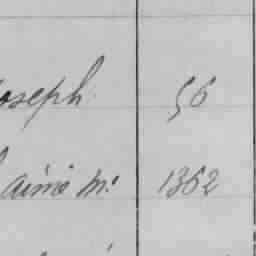 oseph 56
aimé M. 1362